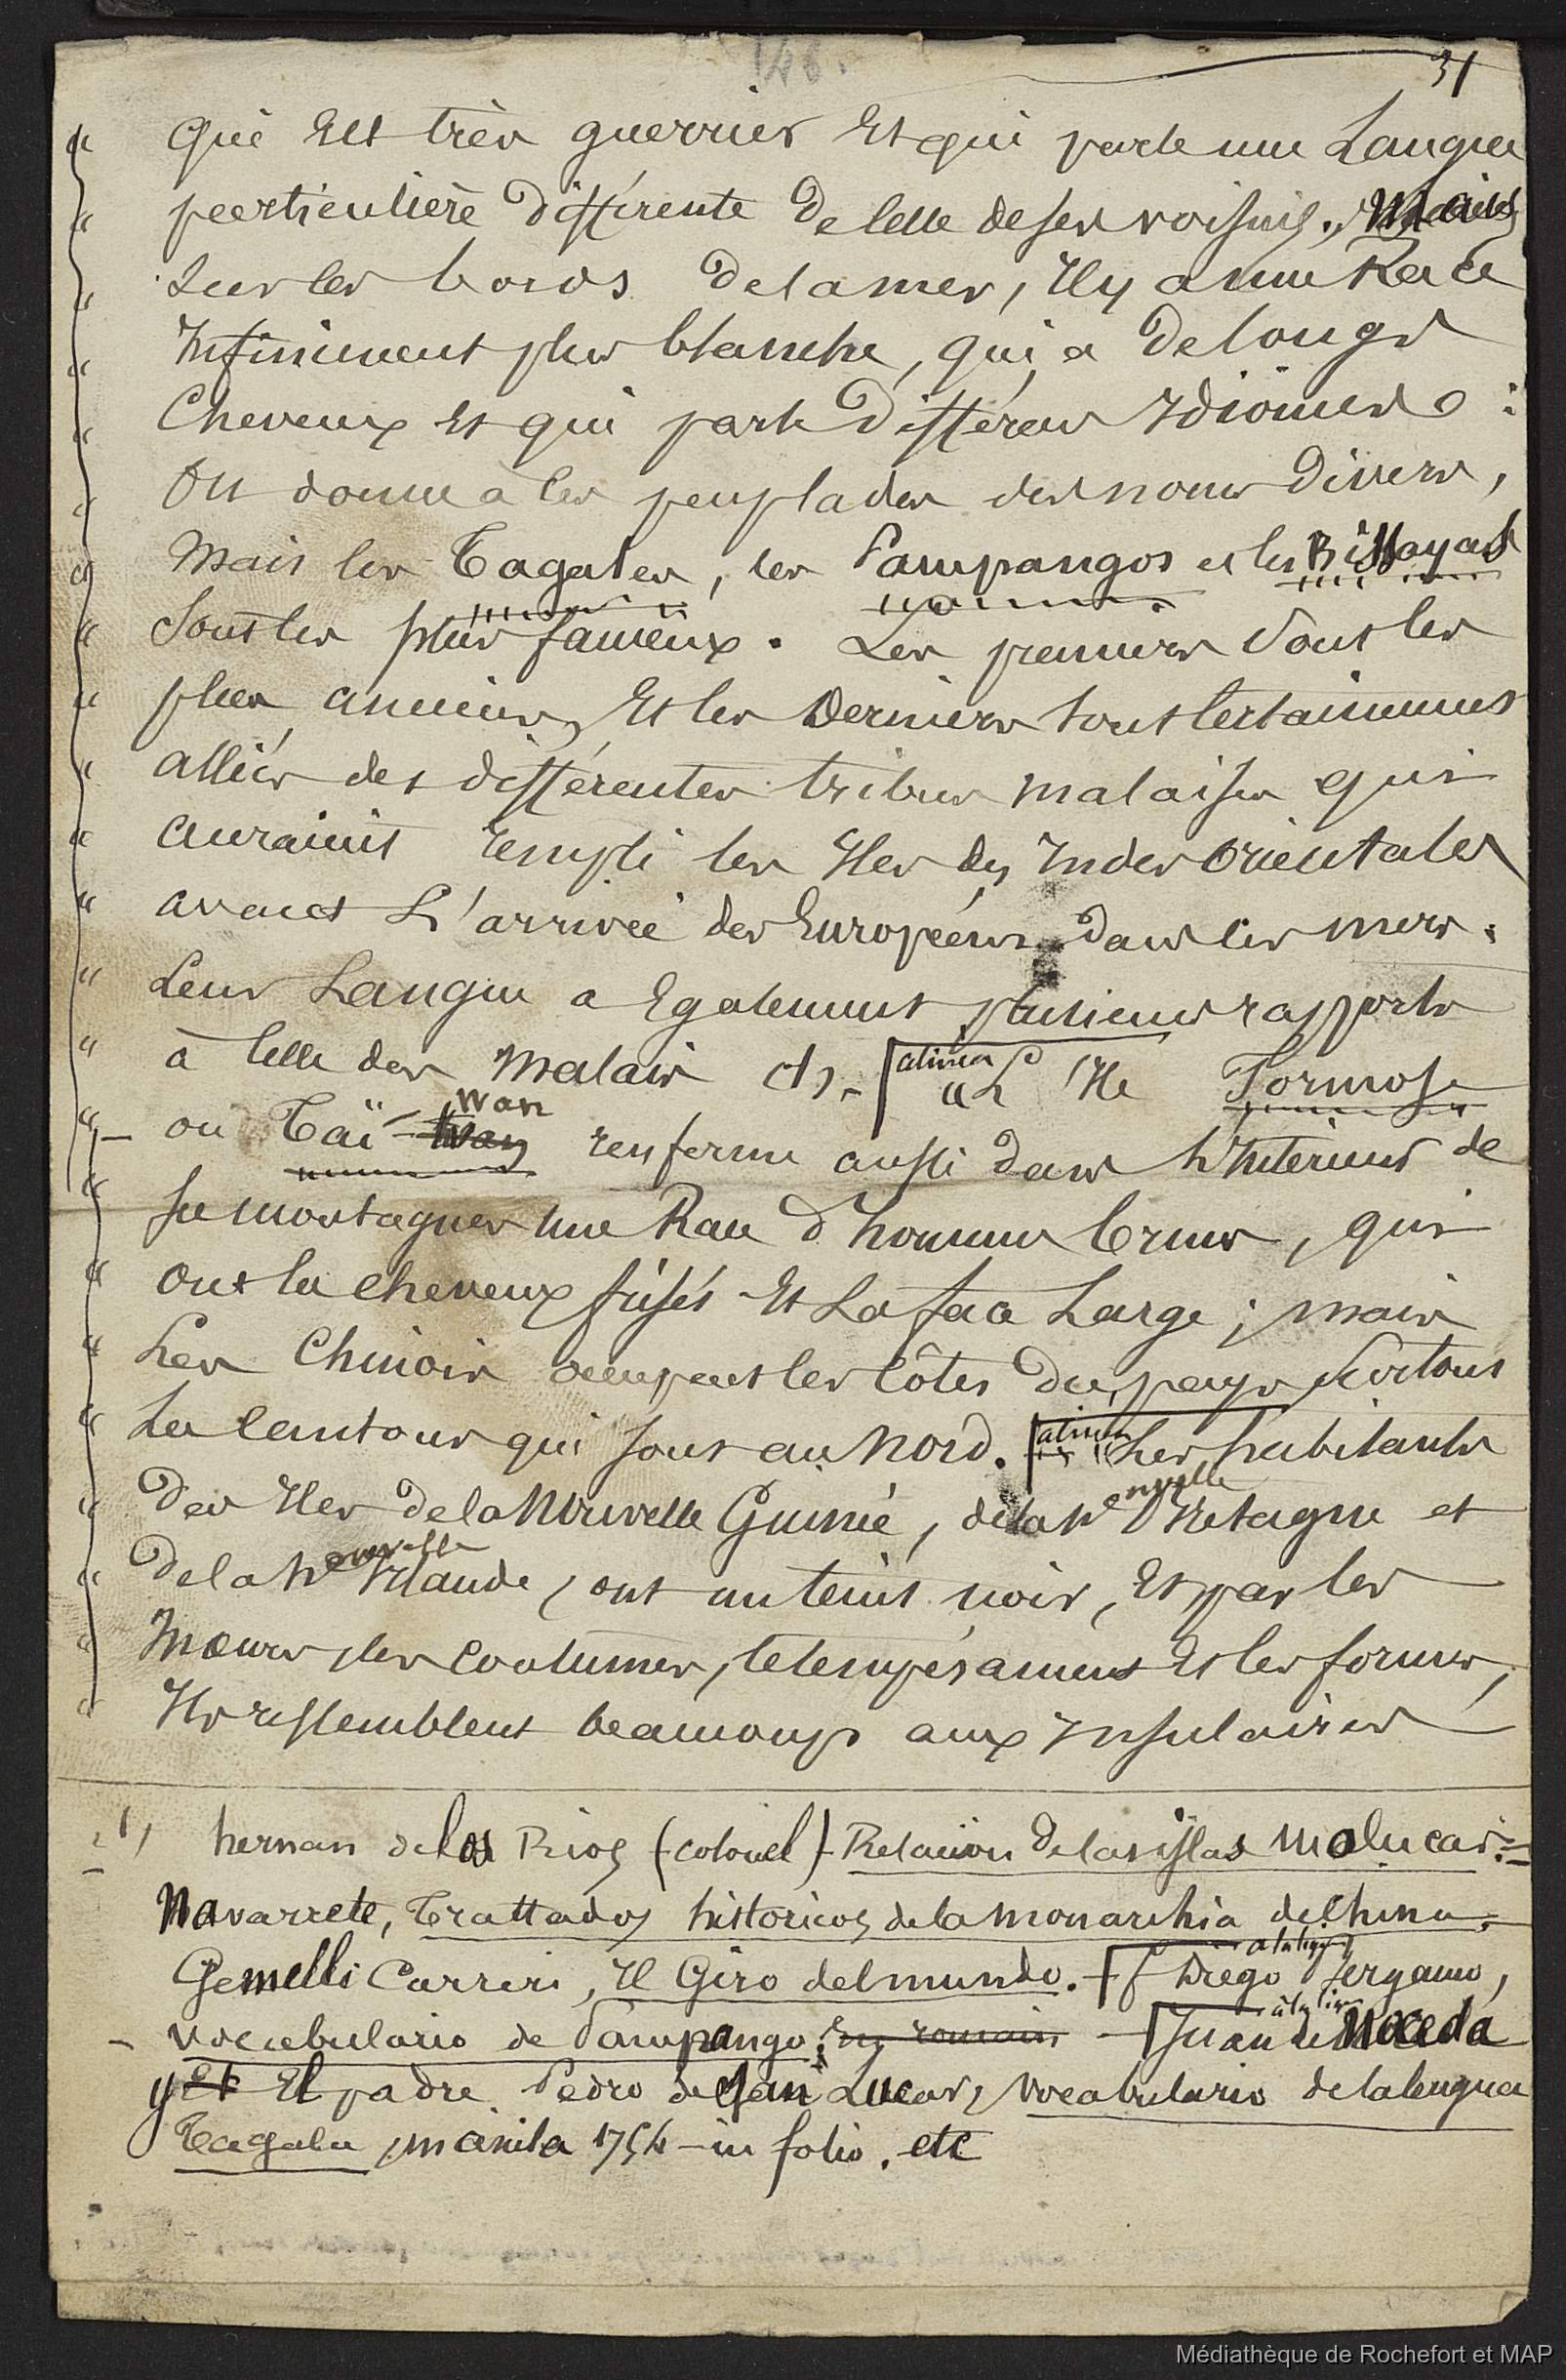 148.
31
" qui Est très guerrier Et qui parle une Langue
" particulière différente De celle de ses voisins., Mais
" sur les bords De la mer, Il y a une Race
" Infiniment plus blanche, qui a De longs
" Cheveux Et qui parle Différens Idiomes :
" On donne à ces peuplades des noms Divers,
" Mais les Tagales, les Pampangos et les Bissayas
" Sont les plus fameux. Les premiers Sont les
" plus anciens, Et les Derniers sont certainement
" alliés des différentes tribus malaises qui
" auraient rempli les Iles des Indes Orientales
" avant L'arrivée des Européens Dans ces mers.
" Leur Langue a Egalement plusieurs rapports
" à celle des Malais (1). - [alinea "L'Ile Formose
" — ou Taï-Wan wan renferme aussi dans L'Intérieur de
" ses montagnes une Race d'hommes bruns, qui
" ont les cheveux frisés Et La face Large ; mais
" Les Chinois occupent les Côtes du pays Surtout
" Les Cantons qui sont au Nord. [alinéa "Les habitants
" Des Iles de la Nouvelle Guinée, de la Nelle ouvelle Bretagne et
" De la Nelle ouvelle Irlande, ont un teint noir, Et par les
" Mœurs, les Coutumes, le tempérament Et les formes,
" Ils ressemblent beaucoup aux Insulaires
(1) hernan de los Rios (colonel) - Relacion De las islas Molucas. =
Navarrete, Trattados historicos de la monarchia de China.
Gemelli Carreri, Il Giro del mundo. - [Diego Bergamo, à la ligne
- vocabulario de Pampango, En romain - [Juan de Noceda à la ligne
y Et El padre Pedro de San Lucar, vocabulario de la lengua
Tagala, Manila 1754 - in folio. etc
Médiathèque de Rochefort et MAP